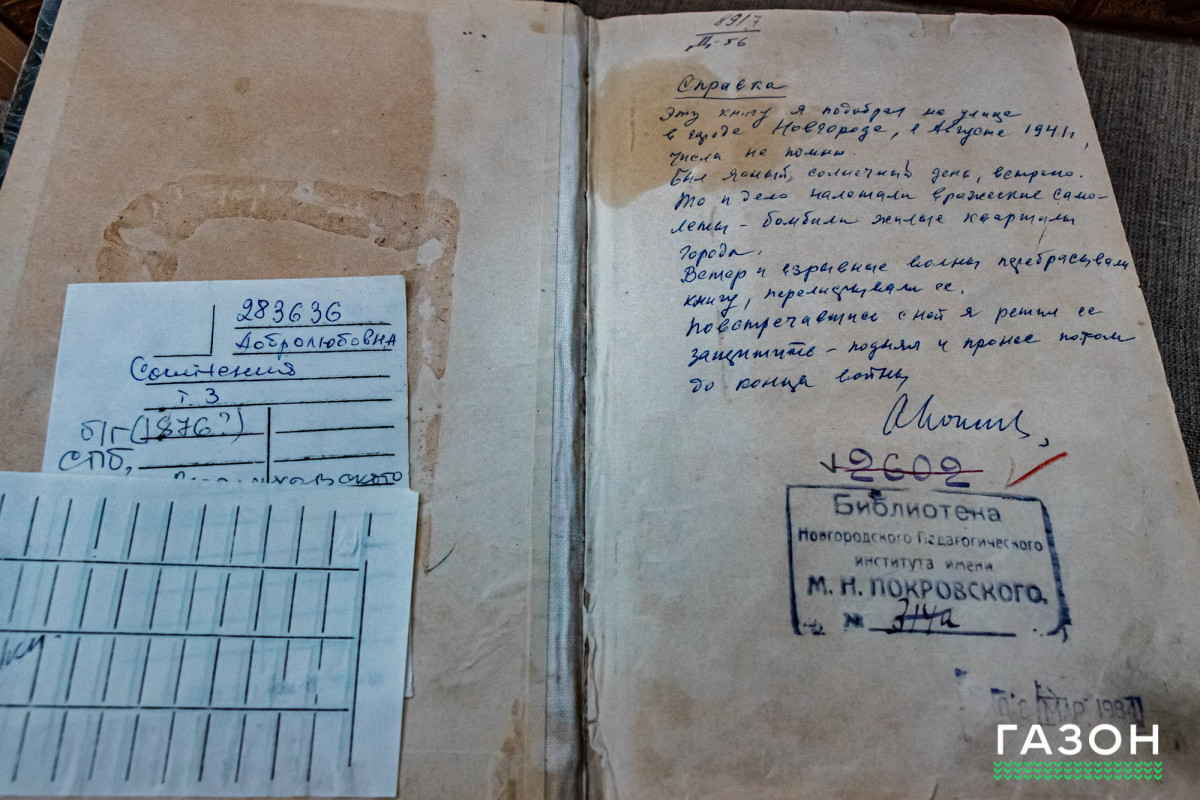 283636
Добролюбов НА
Сочинения
т. 3
б/г (1876?)
СПб,
891,7
Справка
Эту книгу я подобрал на улице
в городе Новгороде, в Августе 1941 г,
числа не помню.
Был ясный, солнечный день, ветрено.
То и дело налетали вражеские само-
леты - бомбили жилые кварталы
города.
Ветер и взрывные волны перебрасывали
книгу, перелистывали ее.
Повстречавшись с ней я решил ее
защитить - поднял и пронес потом
до конца войны
2602
Библиотека
Новгородского Педагогического
института имени
М. Н. ПОКРОВСКОГО.
№ 314а
МАР 1984
ГАЗОН